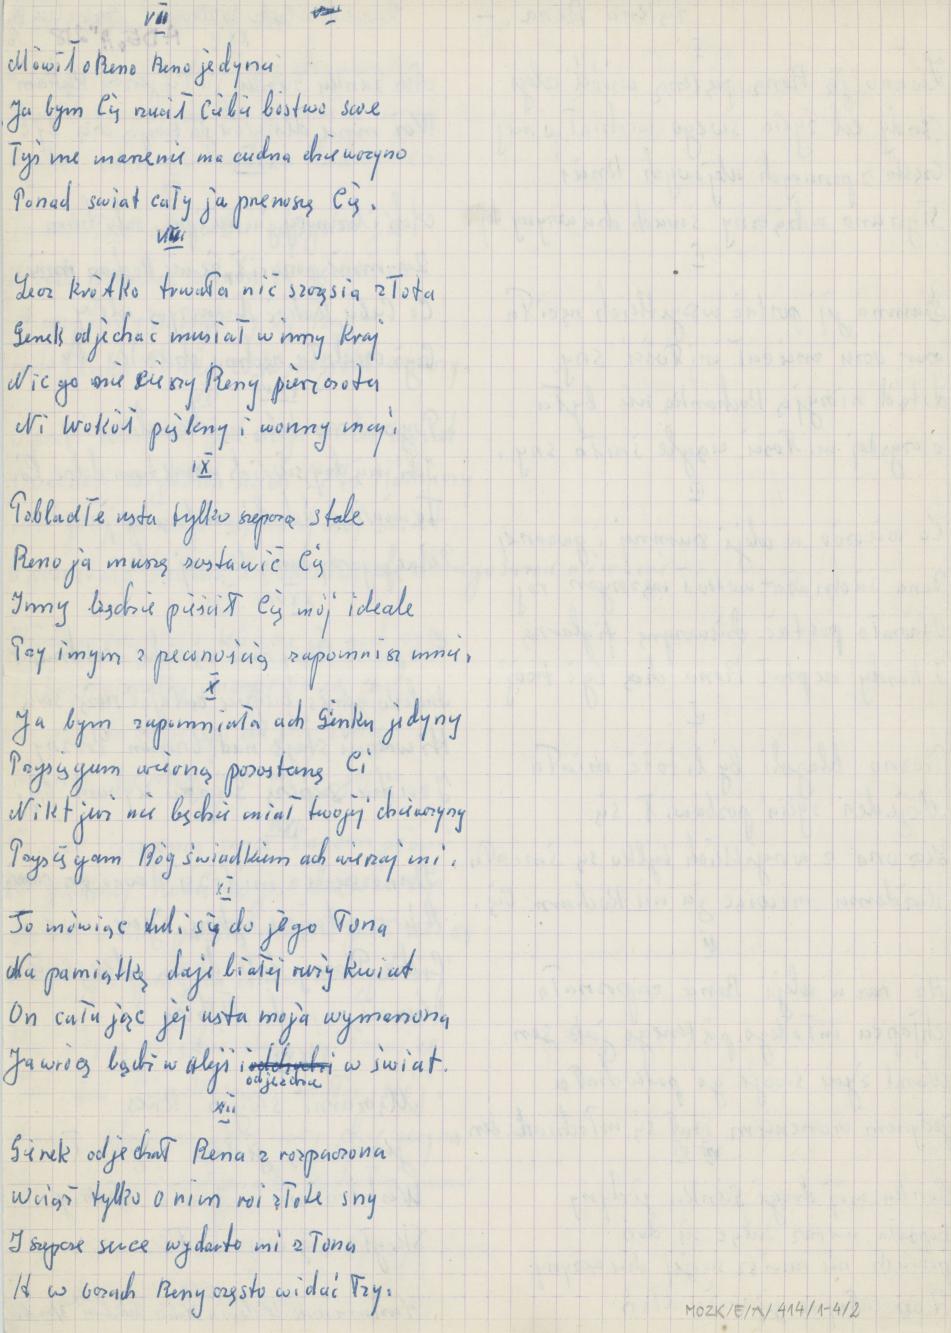 VII
Mówił o Reno Reno jedyna
Ja bym Cię rzucił Ciebie bóstwo swe
Tyś me marzenie ma cudna dzieworzyno
Ponad swiat cały ja prenoszę Cię.
VIII
Lecz krótko trwała nić szczęsia złota
Genek odjechać musiał w inny Kraj
Nic go nie cieszy Reny pieszczota
Ni Wokół piękny i wonny maj.
IX
Pobladłe usta tylko szepcą stale
Reno ja muszę zostawić Cię
Inny będzie pieścił Cię mój ideale
Przy innym z pewnością zapomnisz mnie.
X
Ja bym zapomniała ach Gienku jedyny
Przysięgam wierną pozostanę Ci
Nikt już nie będzie miał twojej dzieweczyny
Przysięgam Bóg świadkiem ach wierzaj mi.
XI
To mówiąc tuli się do jego łona
Na pamiątkę daje białej róży kwiat
On całując jej usta moja wymarzona
Ja wrócę bądź w Aleji i odjeżdża w świat.
XII
Gienek odjechał Rena z rozpaczona
Wciąż tylko o nim roi złote sny
I szepcze serce wydarto mi z łona
A w oczach Reny często widać łzy.
MOZK/E/A/414/1-4/2